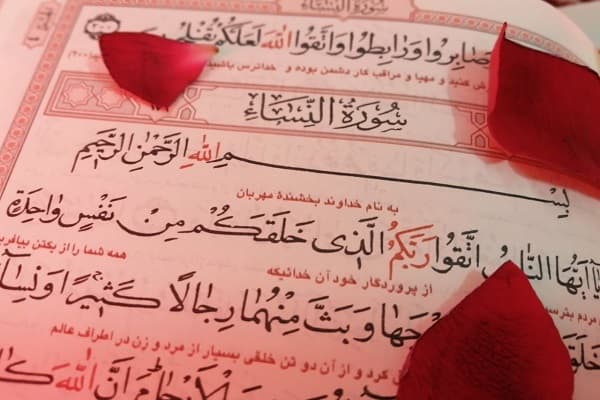 سُورَةُ النِّسَاءِ
صَابِرُوا وَرَابِطُوا وَاتَّقُوا اللَّهَ لَعَلَّكُمْ تُفْلِحُونَ
کنید و مهیا و مراقب کار دشمن بوده و خداترس باشید (۲۰۰)
سُورَةُ النِّسَاءِ
بِسْمِ اللَّهِ الرَّحْمٰنِ الرَّحِيمِ
به نام خداوند بخشندهٔ مهربان
يَا أَيُّهَا النَّاسُ اتَّقُوا رَبَّكُمُ الَّذِى خَلَقَكُمْ مِنْ نَفْسٍ وَاحِدَةٍ
مردم از پروردگار خود آن خدائیکه همه شما را از یکتن
خَلَقَ جَهَا وَبَثَّ مِنْهُمَا رِجَالًا كَثِيرًا وَنِسَاءً
کرد و از آن دو تن خلقی بسیار از مرد و زن در اطراف عالم
إِنَّ اللَّهَ